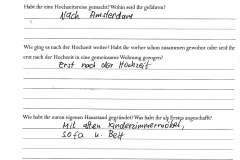 Habt ihr eine Hochzeitsreise gemacht? Wohin seid ihr gefahren?
Nach Amsterdam
Wie ging es nach der Hochzeit weiter? Habt ihr vorher schon zusammen gewohnt oder seid ihr
erst nach der Hochzeit in eine gemeinsame Wohnung gezogen?
Erst nach der Hochzeit
Wie habt ihr euren eigenen Hausstand gegründet? Was habt ihr als erstes angeschafft?
Mit alten Kinderzimmermöbel,
Sofa u. Bett